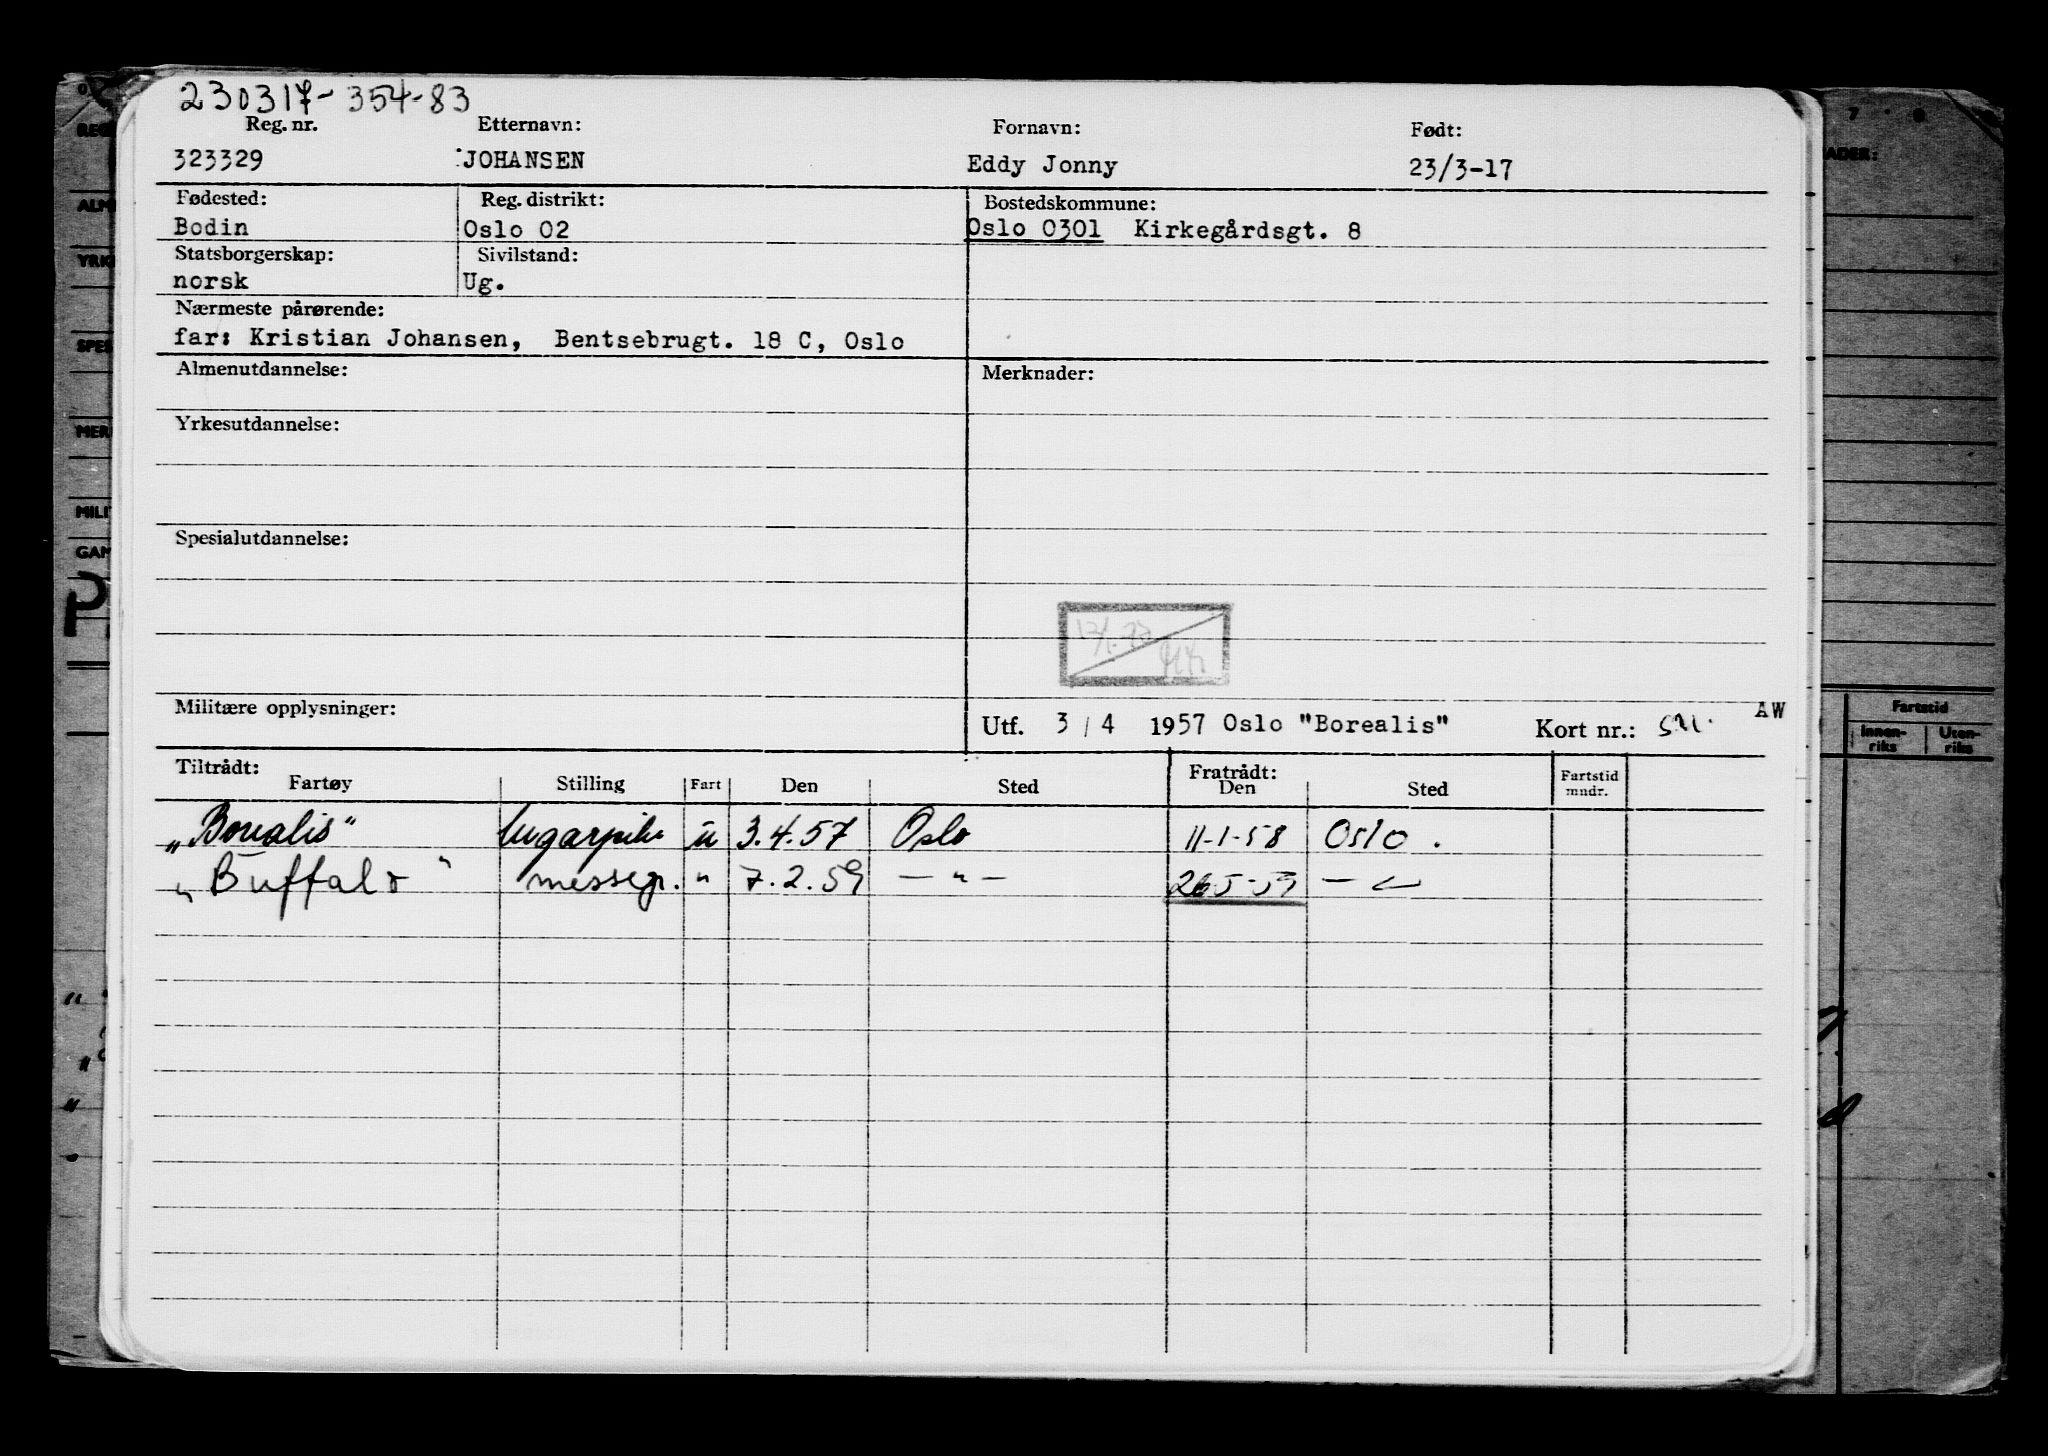 230317-354-83
Reg. nr. Etternavn: Fornavn: Født:
323329 JOHANSEN Eddy Jonny 23/3-17
Fødested: Reg. distrikt: Bostedskommune:
Bodin Oslo 02 Oslo 0301 Kirkegårdsgt. 8
Statsborgerskap: Sivilstand:
norsk Ug.
Nærmeste pårørende:
far: Kristian Johansen, Bentsebrugt. 18 C, Oslo
Almenutdannelse: Merknader:
Yrkesutdannelse:
Spesialutdannelse:
Militære opplysninger: Utf. 3 / 4 1957 Oslo "Borealis" Kort nr.: AW
Tiltrådt: Fratrådt:
Fartøy Stilling Fart Den Sted Den Sted Fartstid mndr.
„Borealis" lugarpike u 3.4.57 Oslo 11-1-58 Oslo.
„Buffalo" messegr. " 7.2.59 — " — 26-5-59
Fartstid
Innen-riks Uten-riks